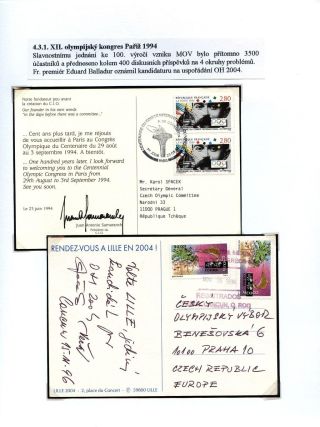 4.3.1. XII. olympijský kongres Paříž 1994
Slavnostnímu jednání ke 100. výročí vzniku MOV bylo přítomno 3500
účastníků a předneseno kolem 400 diskusních příspěvků na 4 okruhy problémů.
Fr. premiér Eduard Balladur oznámil kandidaturu na uspořádání OH 2004.
Notre fondateur juste avant
la création du C.I.O.
Our founder in his own words
"in the days before there was a committee"
Cent ans plus tard, je me réjouis
de vous accueillir à Paris au Congrès
Olympique du Centenaire du 29
août au 3 septembre 1994. A bientôt.
One hundred years later. I look forward
to welcoming you to the Centennial
Olympic Congress in Paris from
29th August to 3rd September 1994.
See you soon.
Le 23 juin 1994
Juan Antonio Samaranch
RÉPUBLIQUE FRANÇAISE
2,80
2,80
Mr. Karel SPACEK
Secretary General
Czech Olympic Committee
11000 PRAGUE 1
République Tchèque
RENDEZ-VOUS A LILLE EN 2004 !
Volte LILLE, jediný
OH 2004
Cancun
96
REGISTRADOS
CANCUN, Q. ROO
ČESKÝ
OLYMPIJSKÝ VÝBOR
BENEŠOVSKÁ 6
10100 PRAHA 10
CZECH REPUBLIC
EUROPE
LILLE 2004 - 2, place du Concert - 59800 LILLE